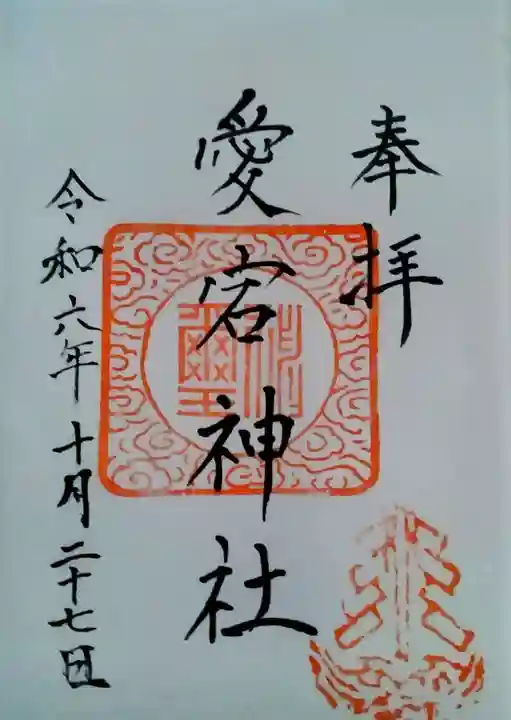 奉拝
愛宕神社
令和六年十月二十七日